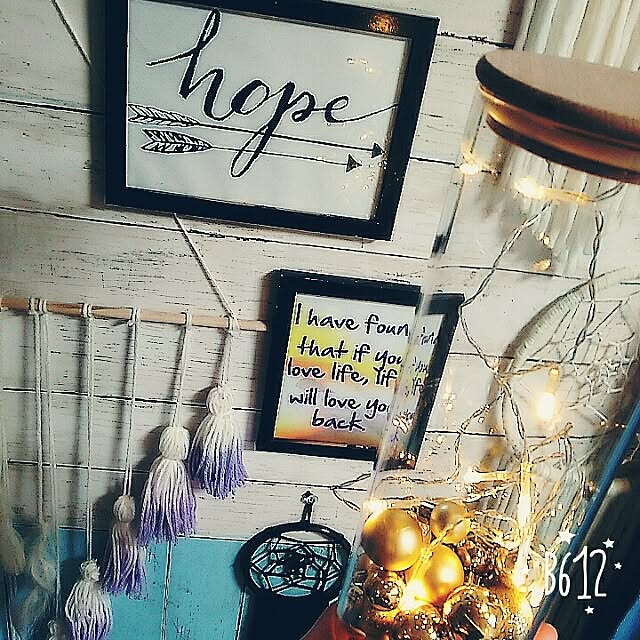 hope
I have foun
that if you
love life, life
will love you
back
B612